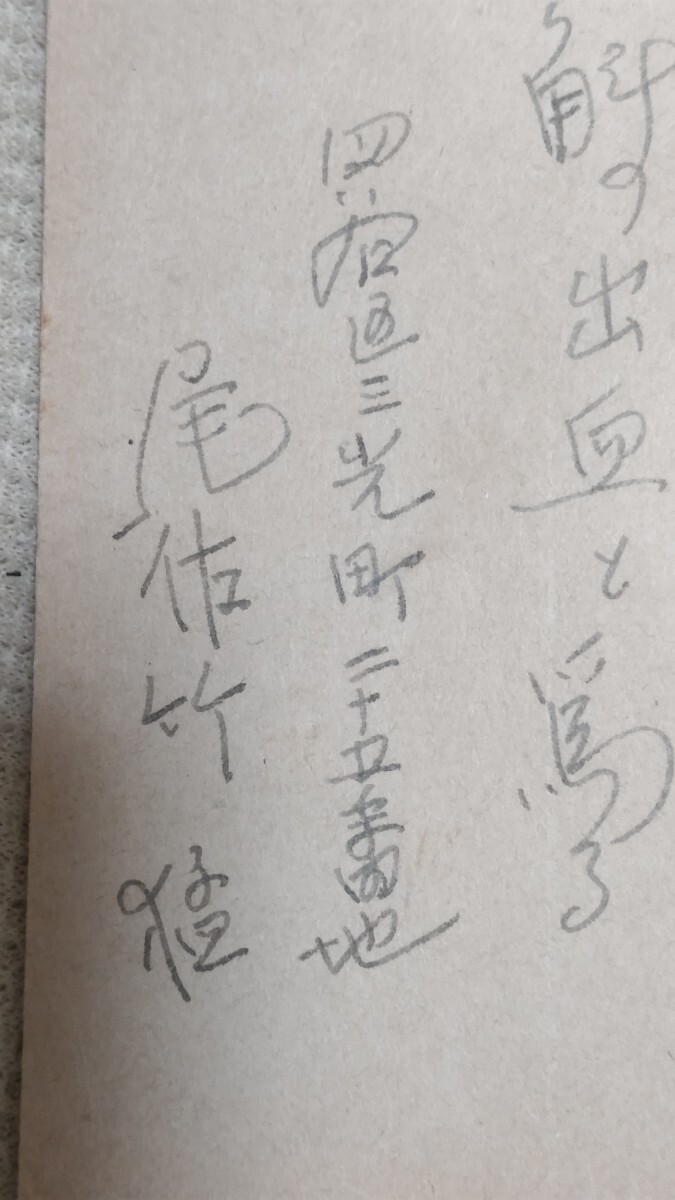 斛の出血と為る
四谷区三光町二十五番地
尾佐竹猛